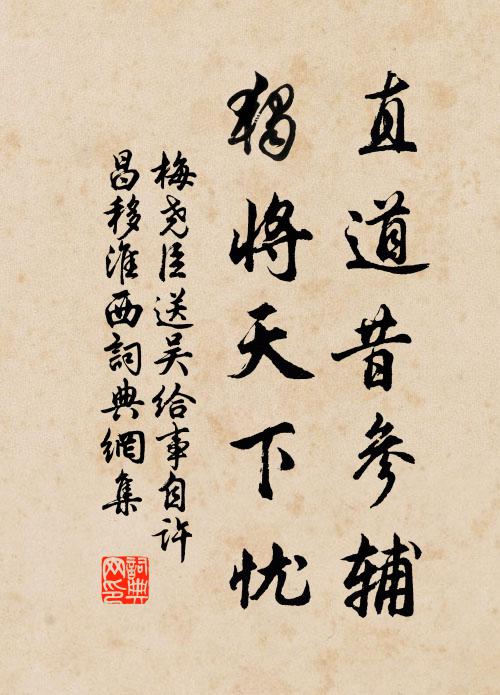 直道昔参辅
獨将天下忧
梅尧臣送吴给事自许
昌移淮西詞典網集
詞典
网印